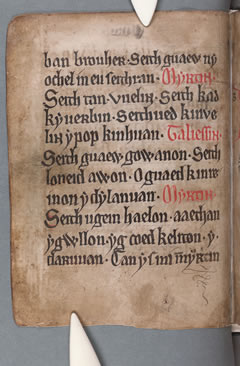 ban brouher. Seith guaew ny
ochel in eu seithran. Myrtin.
Seith tan. vuelin. Seith kad
kyuerbin. Seithued kinve
lin y pop kinhuan. Taliessin.
Seith guaew gowanon. Seith
loneid awon. O guaed kinre
inon y dylanuan. Myrtin.
Seith ugein haelon. a aethan
ygwllon. yg coed keliton. y.
daruuan. Can ys mi myrtin